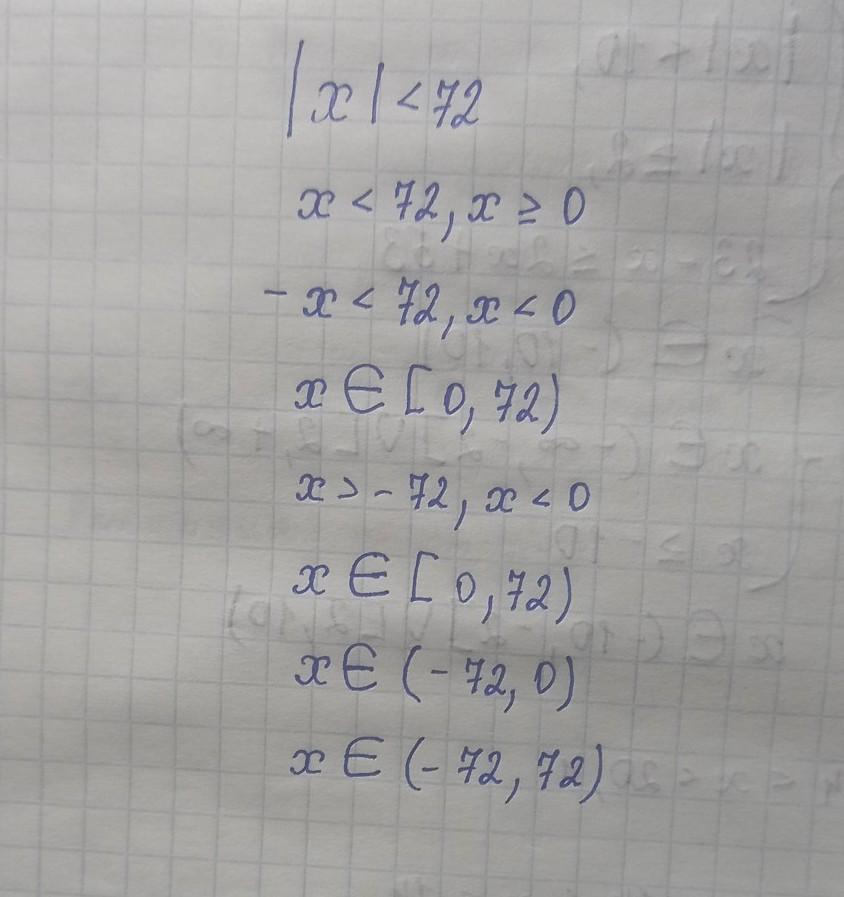 |x| < 72
x < 72, x ≥ 0
- x < 72, x < 0
x ∈ [0, 72)
x > - 72, x < 0
x ∈ [0, 72)
x ∈ (- 72, 0)
x ∈ (- 72, 72)